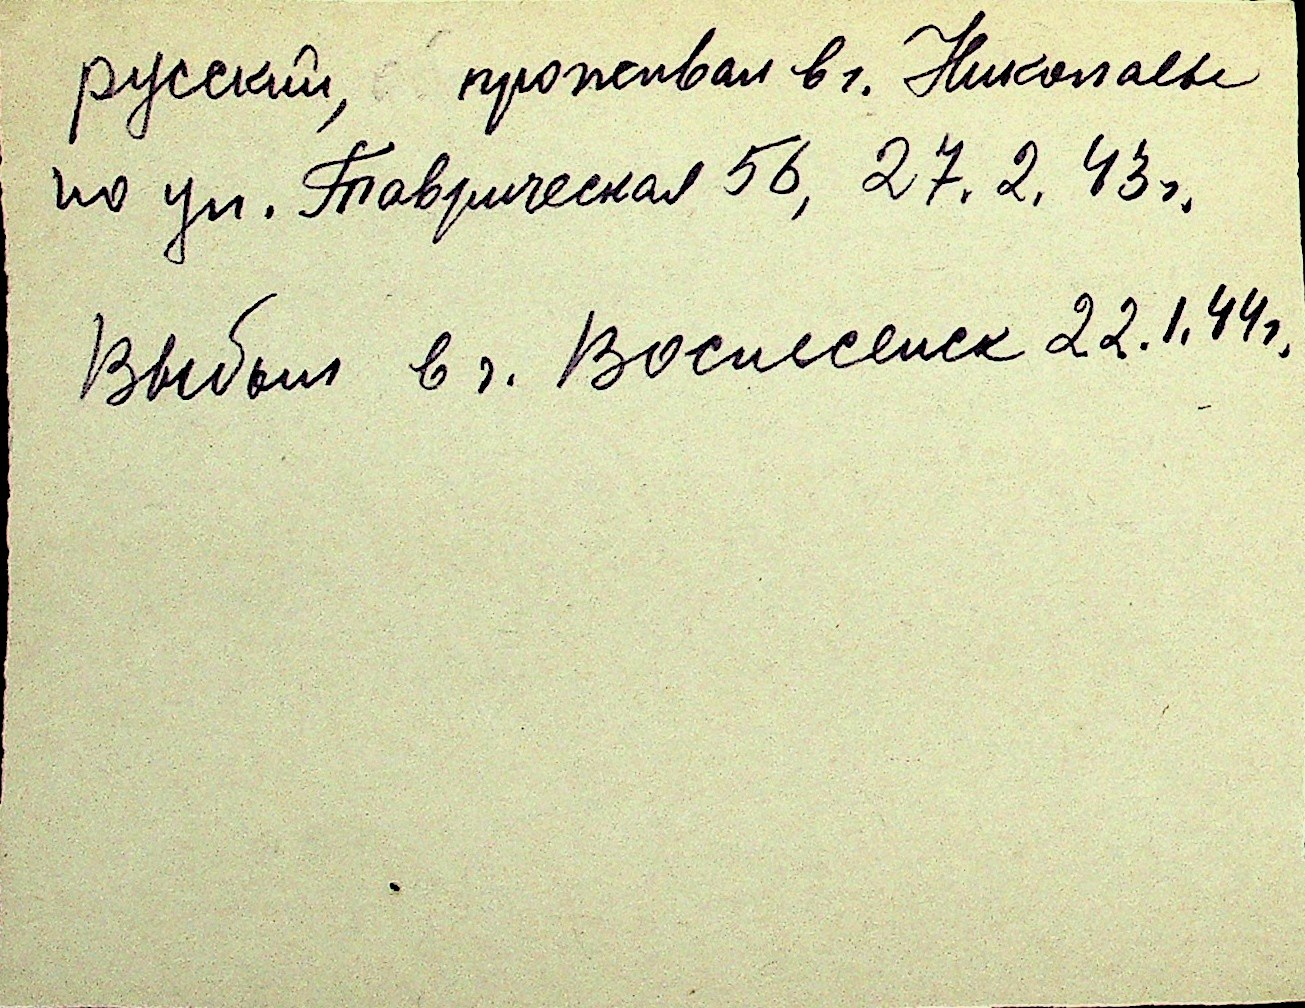 русский, проживал в г. Николаеве
по ул. Таврическая 56, 27.2.43г.
Выбыл в г. Вознесенск 22.1.44г.